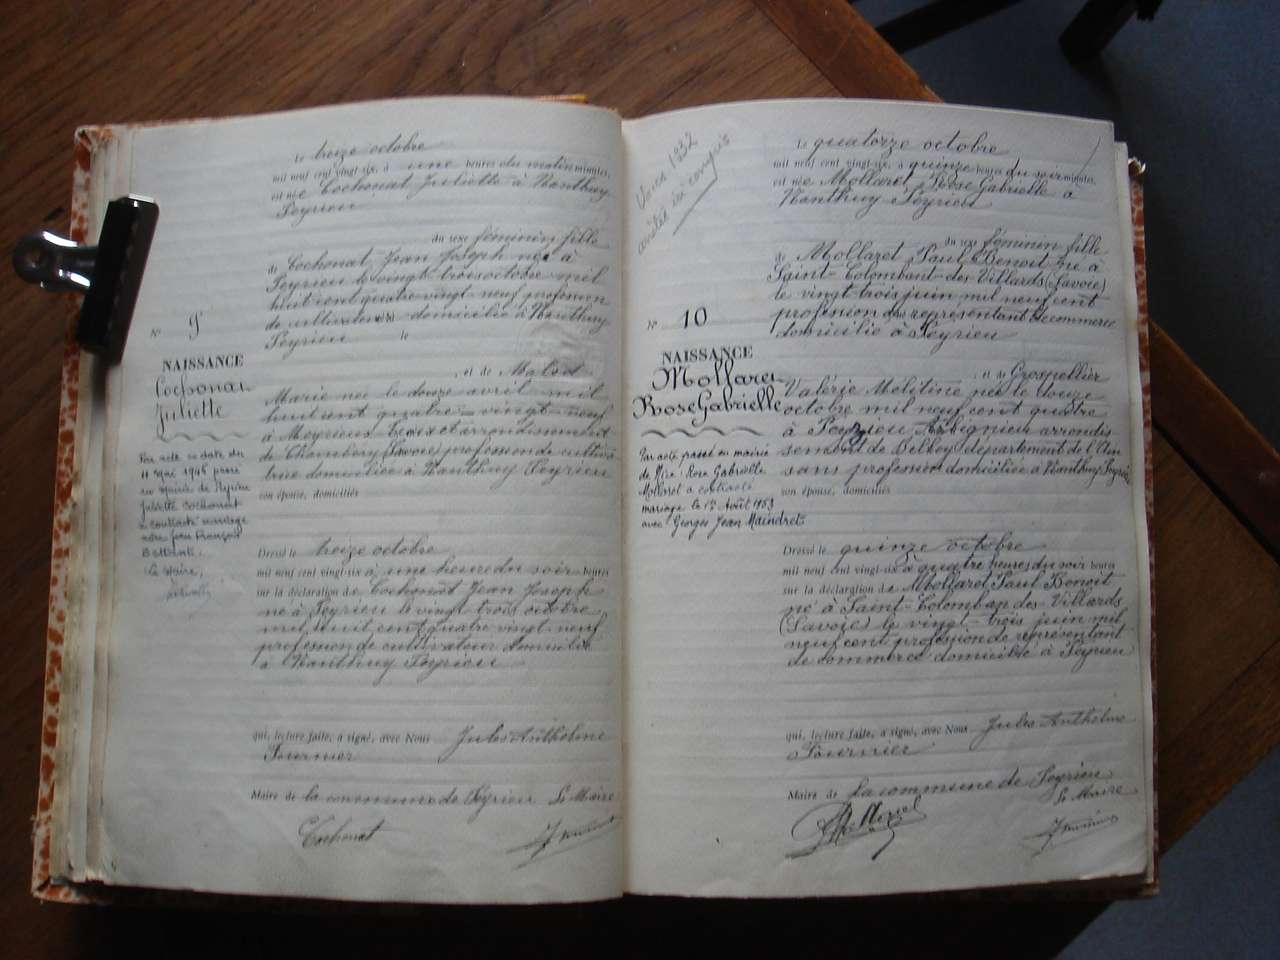 Le treize octobre
mil neuf cent vingt-six, à une heures du matin minutes,
est née Cochonat Juliette à Nanthuy
Peyrieu
du sexe féminin fille
de Cochonat Jean Joseph né à
Peyrieu le vingt trois octobre mil
huit cent quatre vingt-neuf profession
de cultivateur domicilié à Nanthuy
Peyrieu le
N° 9
NAISSANCE
Cochonat
Juliette
et de
Marie née le douze avril mil
huit cent quatre-vingt-neuf
à Meyrieux Trouet arrondissement
de Chambéry (Savoie) profession de cultiva
trice domiciliée à Nanthuy Peyrieu
son épouse, domiciliés
Par acte en date du
11 Mai 1946 passé
en Mairie de Peyrieu
Juliette Cochonat
a contracté mariage
avec Jean François
Le Maire,
Dressé le treize octobre
mil neuf cent vingt-six à une heure du soir heures
sur la déclaration de Cochonat Jean Joseph
né à Peyrieu le vingt trois octobre
mil huit cent quatre vingt-neuf
profession de cultivateur domicilié
à Nanthuy Peyrieu
qui, lecture faite, a signé, avec Nous Jules Anthelme
Fournier
Maire de la commune de Peyrieu Le Maire
Cochonat
1932
Le quatorze octobre
mil neuf cent vingt-six, à quinze heures du soir minutes,
est née Mollaret Rose Gabrielle à
Nanthuy Peyrieu
du sexe féminin fille
de Mollaret Paul Benoit né à
Saint-Colomban-des-Villards (Savoie)
le vingt trois juin mil neuf cent
profession de représentant de commerce
domicilié à Peyrieu
N° 10
NAISSANCE
Mollaret
Rose Gabrielle
et de Grospellier
Valérie Melitine née le douze
octobre mil neuf cent quatre
à Peyrieu Arbignieu arrondis
sement de Belley département de l'Ain
sans profession domiciliée à Nanthuy Peyrieu
son épouse, domiciliés
Par acte passé en mairie
de Nice, Rose Gabrielle
Mollaret a contracté
mariage le 1er Août 1953
avec Georges Jean Maindret
Dressé le quinze octobre
mil neuf cent vingt-six à quatre heures du soir heures
sur la déclaration de Mollaret Paul Benoit
né à Saint-Colomban des Villards
(Savoie) le vingt-trois juin mil
neuf cent profession de représentant
de commerce domicilié à Peyrieu
qui, lecture faite, a signé, avec Nous Jules Anthelme
Fournier
Maire de la commune de Peyrieu
Le Maire